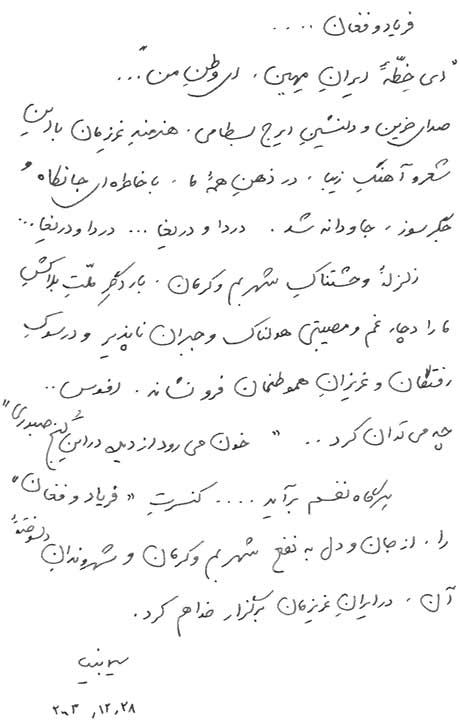 فریاد و فغان ....
"ای خطّهٔ ایرانِ مهین، ای وطنِ من"...
صدای حزین و دلنشینِ ایرج بسطامی، هنرمندِ عزیزمان با این
شعر و آهنگِ زیبا، در ذهنِ همهٔ ما، با خاطره‌ای جانکاه و
جگرسوز، جاودانه شد. دردا و دریغا... دردا و دریغا...
زلزلهٔ وحشتناکِ شهرِ بم و کرمان، بار دگر ملّتِ بلاکشِ
ما را دچار غم و مصیبتی هولناک و جبران ناپذیر و در سوگِ
رفتگان و عزیزانِ هموطنمان فرو نشاند. افسوس..
چه می‌توان کرد.. " خون می رود از دیده در این کنج صبوری"
هرگاه نفسم برآید .... کنسرتِ "فریاد و فغان"
را، از جان و دل به نفع شهرِ بم و کرمان و شهروندانِ دلسوختهٔ
آن، در ایرانِ عزیزمان برگزار خواهم کرد.
۲۰۰۳,۱۲,۲۸